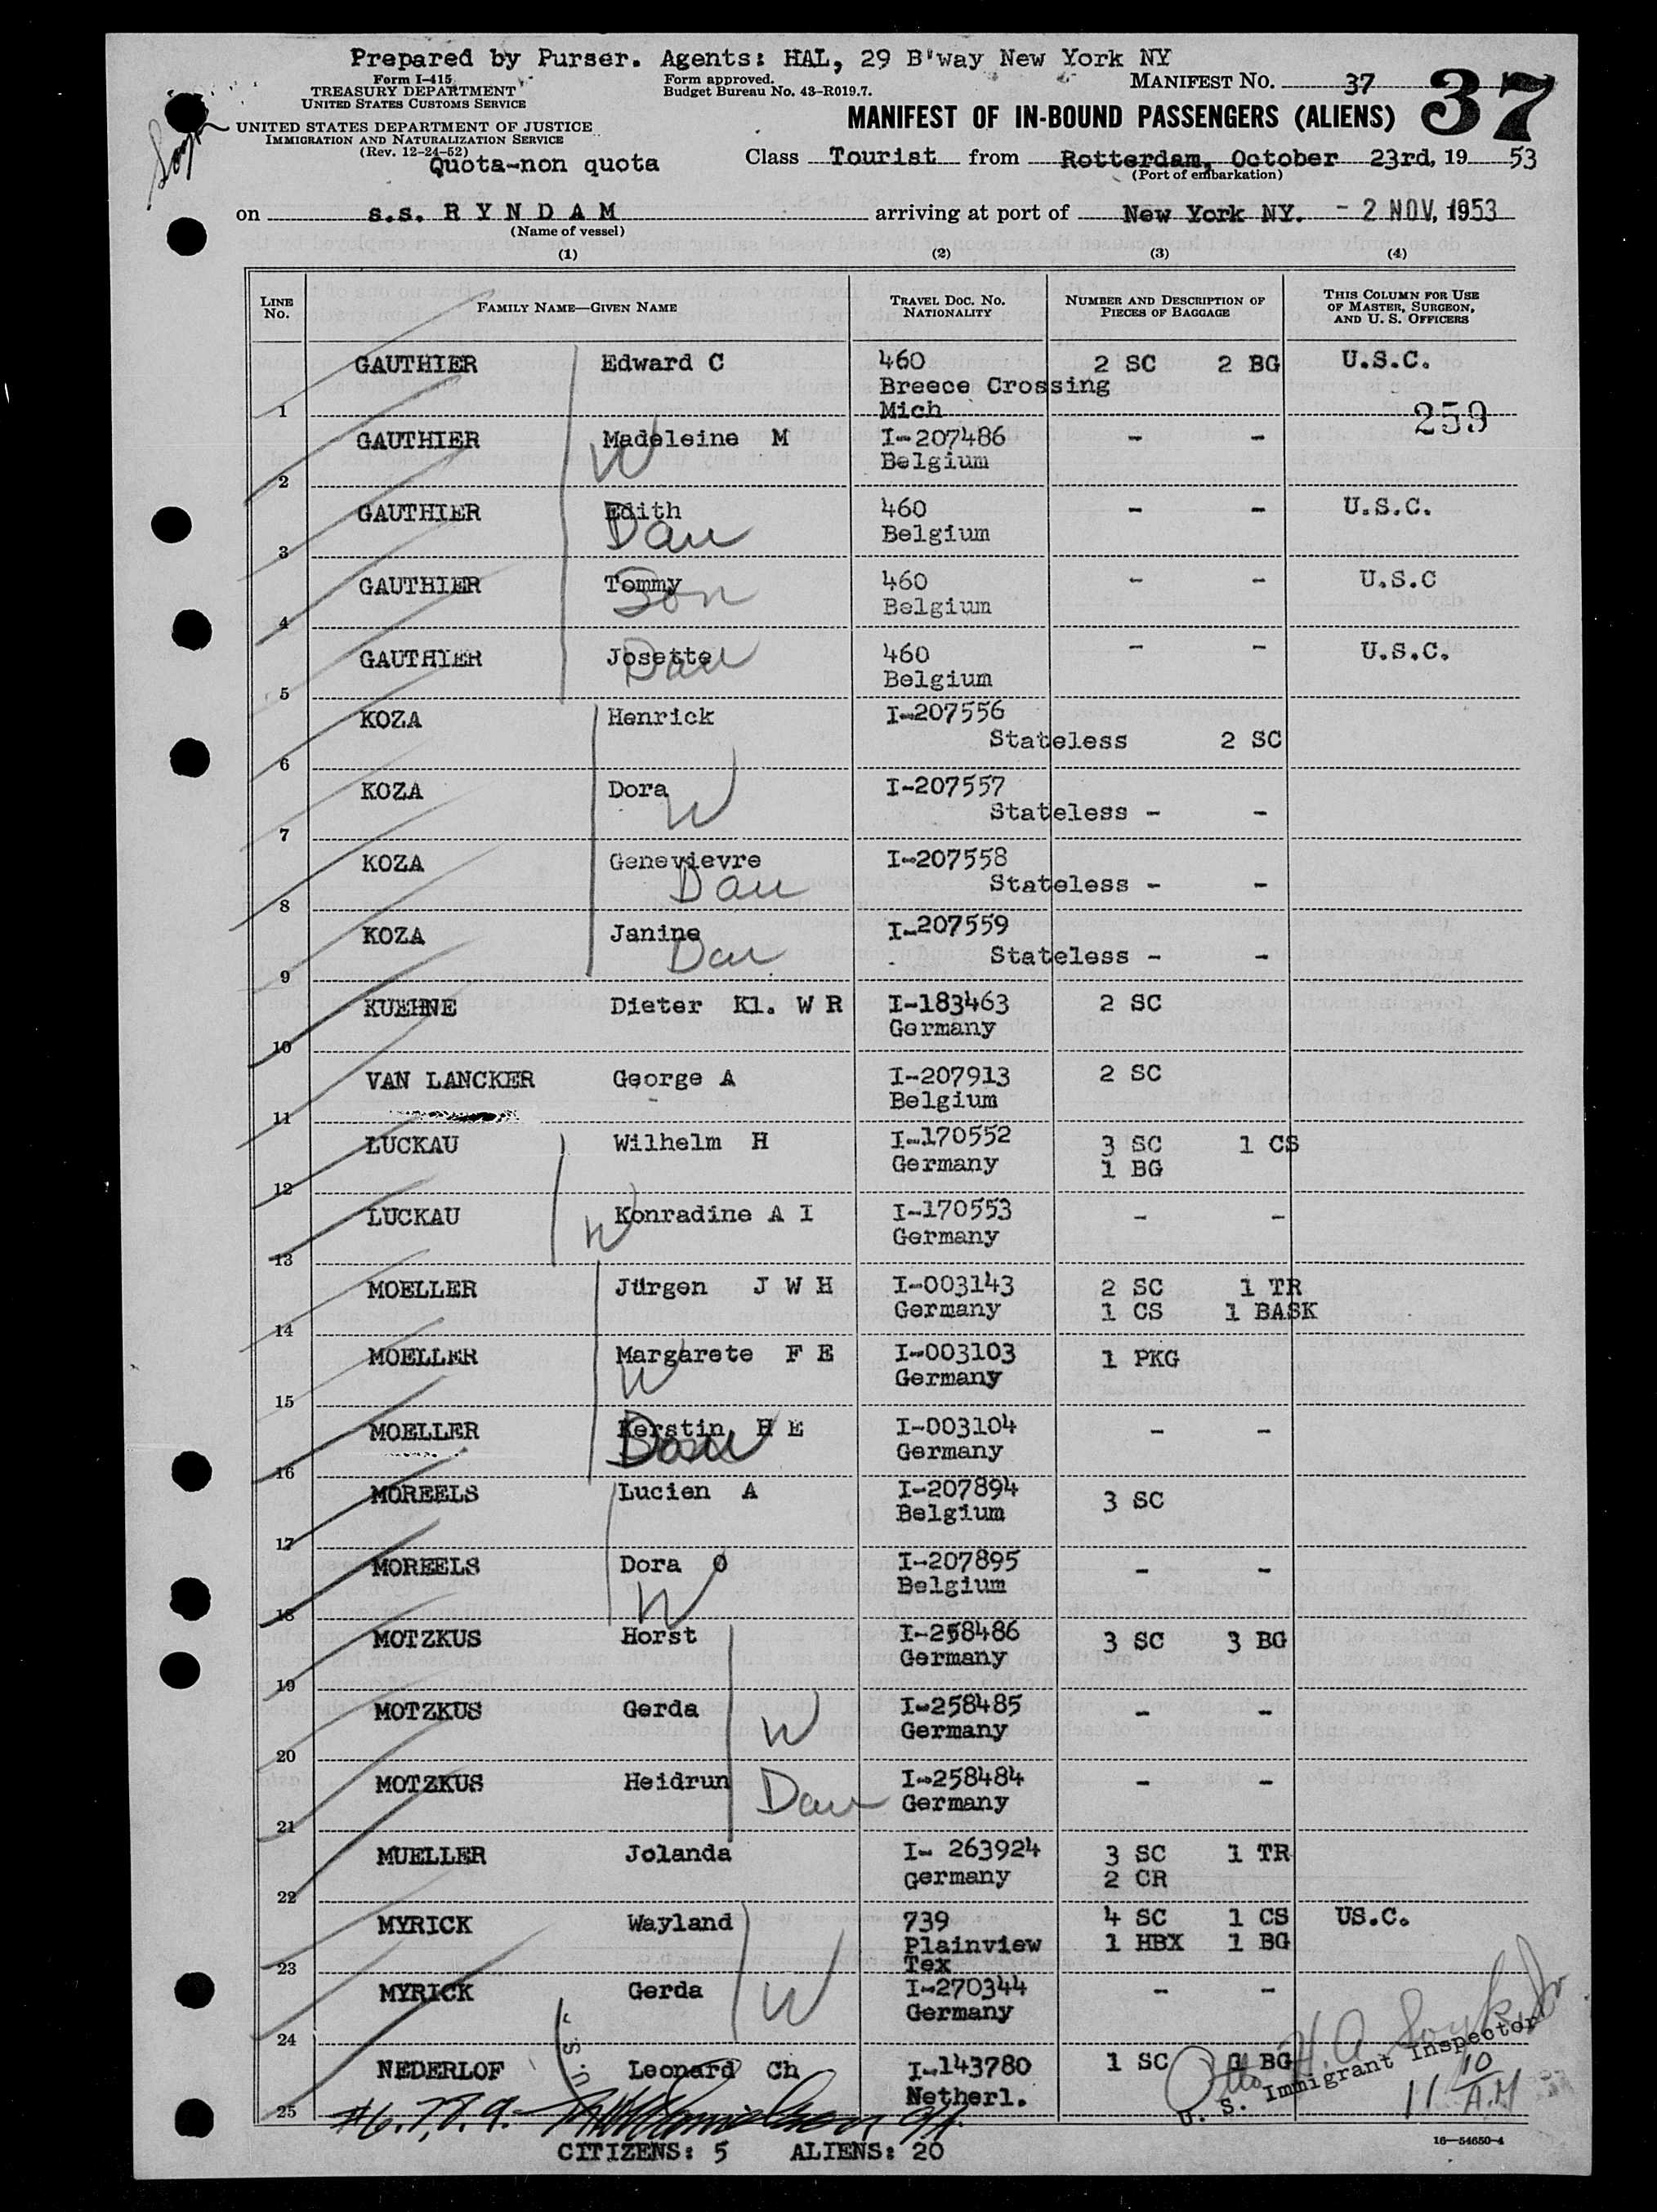 Prepared by Purser. Agents: HAL, 29 B'way New York NY
Form I-415
TREASURY DEPARTMENT
UNITED STATES CUSTOMS SERVICE
Form approved.
Budget Bureau No. 43-R019.7.
MANIFEST NO. 37
37
UNITED STATES DEPARTMENT OF JUSTICE
IMMIGRATION AND NATURALIZATION SERVICE
(Rev. 12-24-52)
MANIFEST OF IN-BOUND PASSENGERS (ALIENS)
Quota-non quota
Class Tourist from Rotterdam, October 23rd, 19 53
(Port of embarkation)
on s.s. R Y N D A M arriving at port of New York NY. - 2 NOV, 1953
(Name of vessel)
(1) (2) (3) (4)
LINE No. FAMILY NAME—GIVEN NAME TRAVEL DOC. NO. NATIONALITY NUMBER AND DESCRIPTION OF PIECES OF BAGGAGE THIS COLUMN FOR USE OF MASTER, SURGEON, AND U. S. OFFICERS
GAUTHIER Edward C 460 2 SC 2 BG U.S.C.
Breece Crossing
1 Mich 259
GAUTHIER Madeleine M I-207486 - -
W Belgium
2
GAUTHIER Edith 460 - - U.S.C.
Dau Belgium
3
GAUTHIER Tommy 460 - - U.S.C
Son Belgium
4
GAUTHIER Josette 460 - - U.S.C.
Dau Belgium
5
KOZA Henrick I-207556
Stateless 2 SC
6
KOZA Dora I-207557
W Stateless - -
7
KOZA Genevievre I-207558
Dau Stateless - -
8
KOZA Janine I-207559
Dau Stateless - -
9
KUEHNE Dieter Kl. W R I-183463 2 SC
Germany
10
VAN LANCKER George A I-207913 2 SC
Belgium
11
LUCKAU Wilhelm H I-170552 3 SC 1 CS
Germany 1 BG
12
LUCKAU Konradine A I I-170553 - -
W Germany
13
MOELLER Jürgen J W H I-003143 2 SC 1 TR
Germany 1 CS 1 BASK
14
MOELLER Margarete F E I-003103 1 PKG
W Germany
15
MOELLER Kerstin H E I-003104 - -
Dau Germany
16
MOREELS Lucien A I-207894 3 SC
Belgium
17
MOREELS Dora O I-207895 - -
W Belgium
18
MOTZKUS Horst I-258486 3 SC 3 BG
Germany
19
MOTZKUS Gerda I-258485 - -
W Germany
20
MOTZKUS Heidrun I-258484 - -
Dau Germany
21
MUELLER Jolanda I- 263924 3 SC 1 TR
Germany 2 CR
22
MYRICK Wayland 739 4 SC 1 CS US.C.
Plainview 1 HBX 1 BG
23 Tex
MYRICK Gerda I-270344 - -
W Germany
24
NEDERLOF Leonard Ch I-143780 1 SC 1 BG
Netherl.
25
U. S. Immigrant Inspector
11 10 A.M
#6.7.8.9.
CITIZENS: 5 ALIENS: 20
16—54650-4